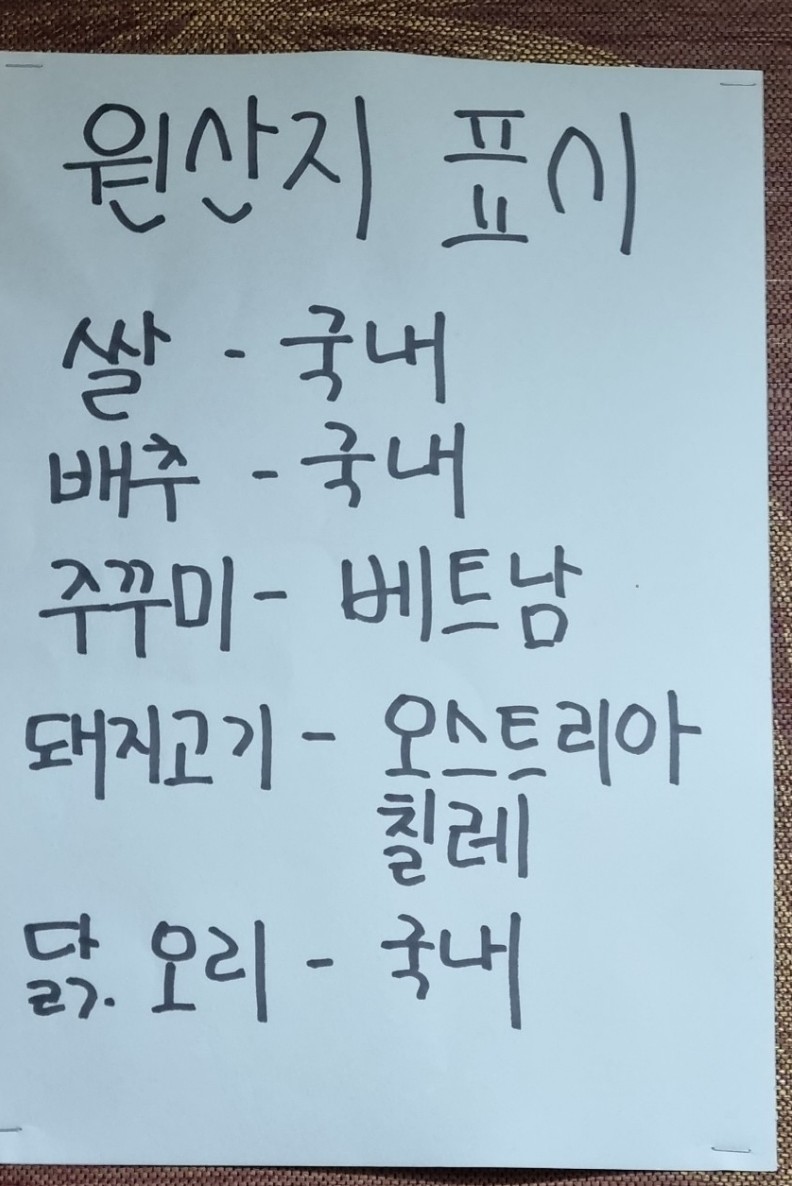 원산지 표시
쌀 - 국내
배추 - 국내
주꾸미 - 베트남
돼지고기 - 오스트리아
칠레
닭. 오리 - 국내